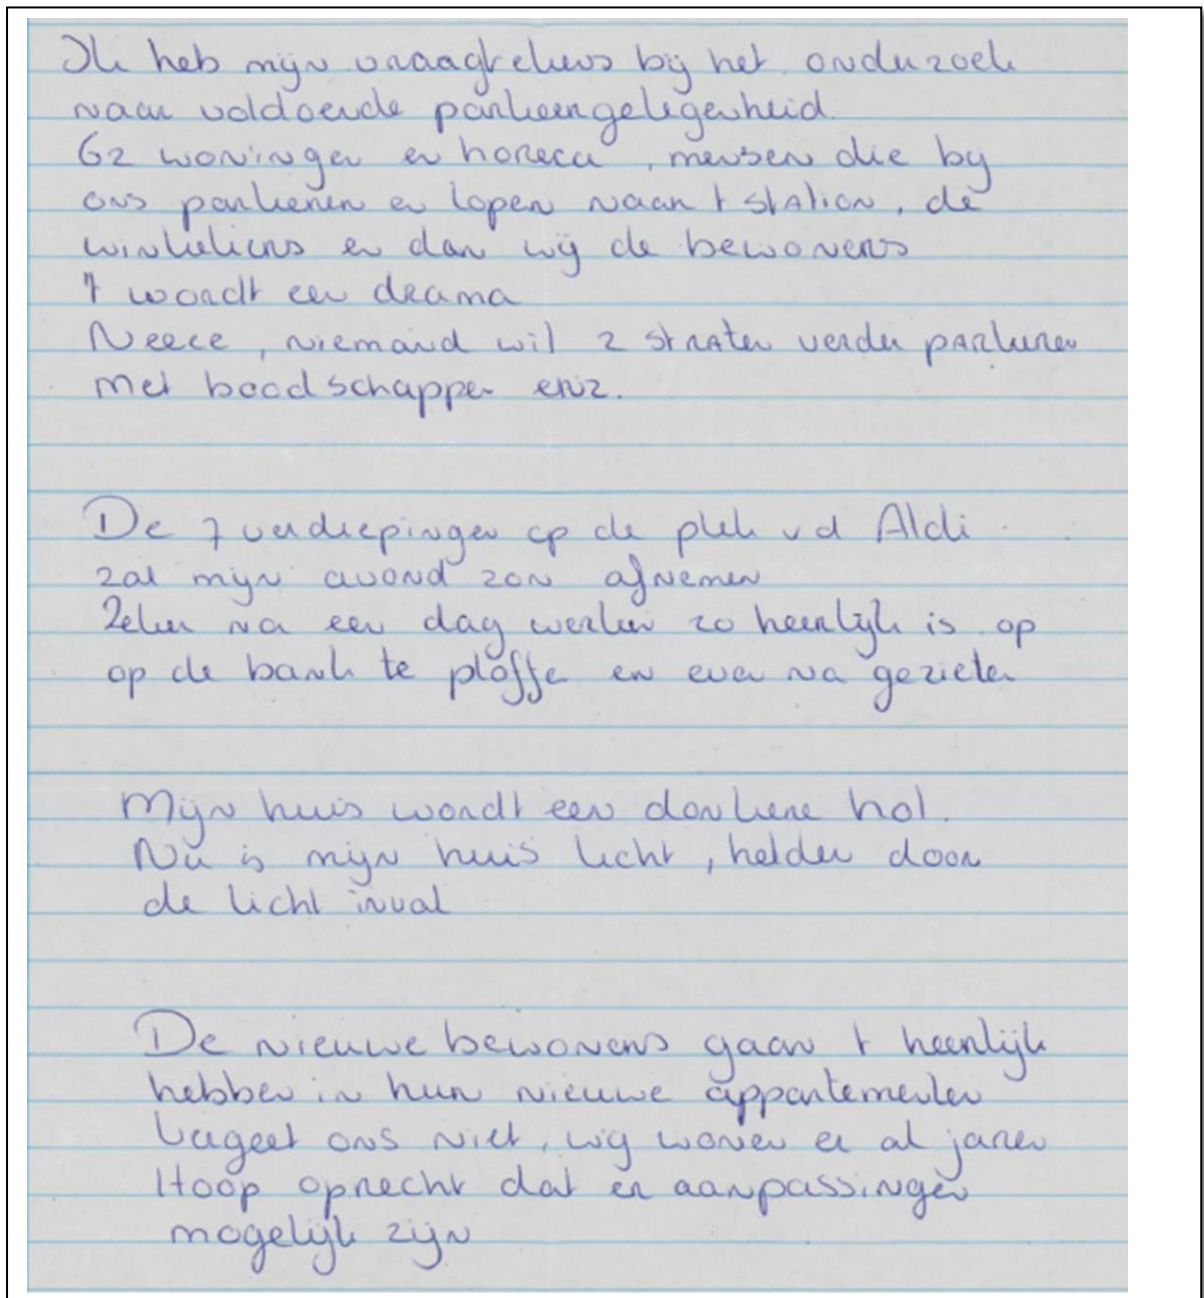 Ik heb mijn vraagtekens bij het onderzoek
naar voldoende parkeergelegenheid.
62 woningen en horeca, mensen die bij
ons parkeren en lopen naar t station, de
winkeliers en dan wij de bewoners
't wordt een drama
Neeee, niemand wil 2 straten verder parkeren
met boodschappen enz.
De 7 verdiepingen op de plek v d Aldi
zal mijn avond zon afnemen
Zeker na een dag werken zo heerlijk is op
op de bank te ploffe en even na gezieten
Mijn huis wordt een donkere hol.
Nu is mijn huis licht, helder door
de licht inval
De nieuwe bewoners gaan t heerlijk
hebben in hun nieuwe appartementen
Vergeet ons niet, wij wonen er al jaren
Hoop oprecht dat er aanpassingen
mogelijk zijn